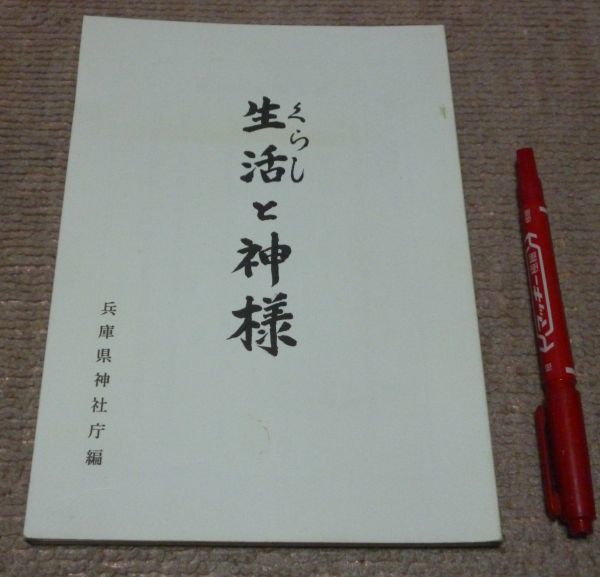 生活と神様
くらし
兵庫県神社庁編